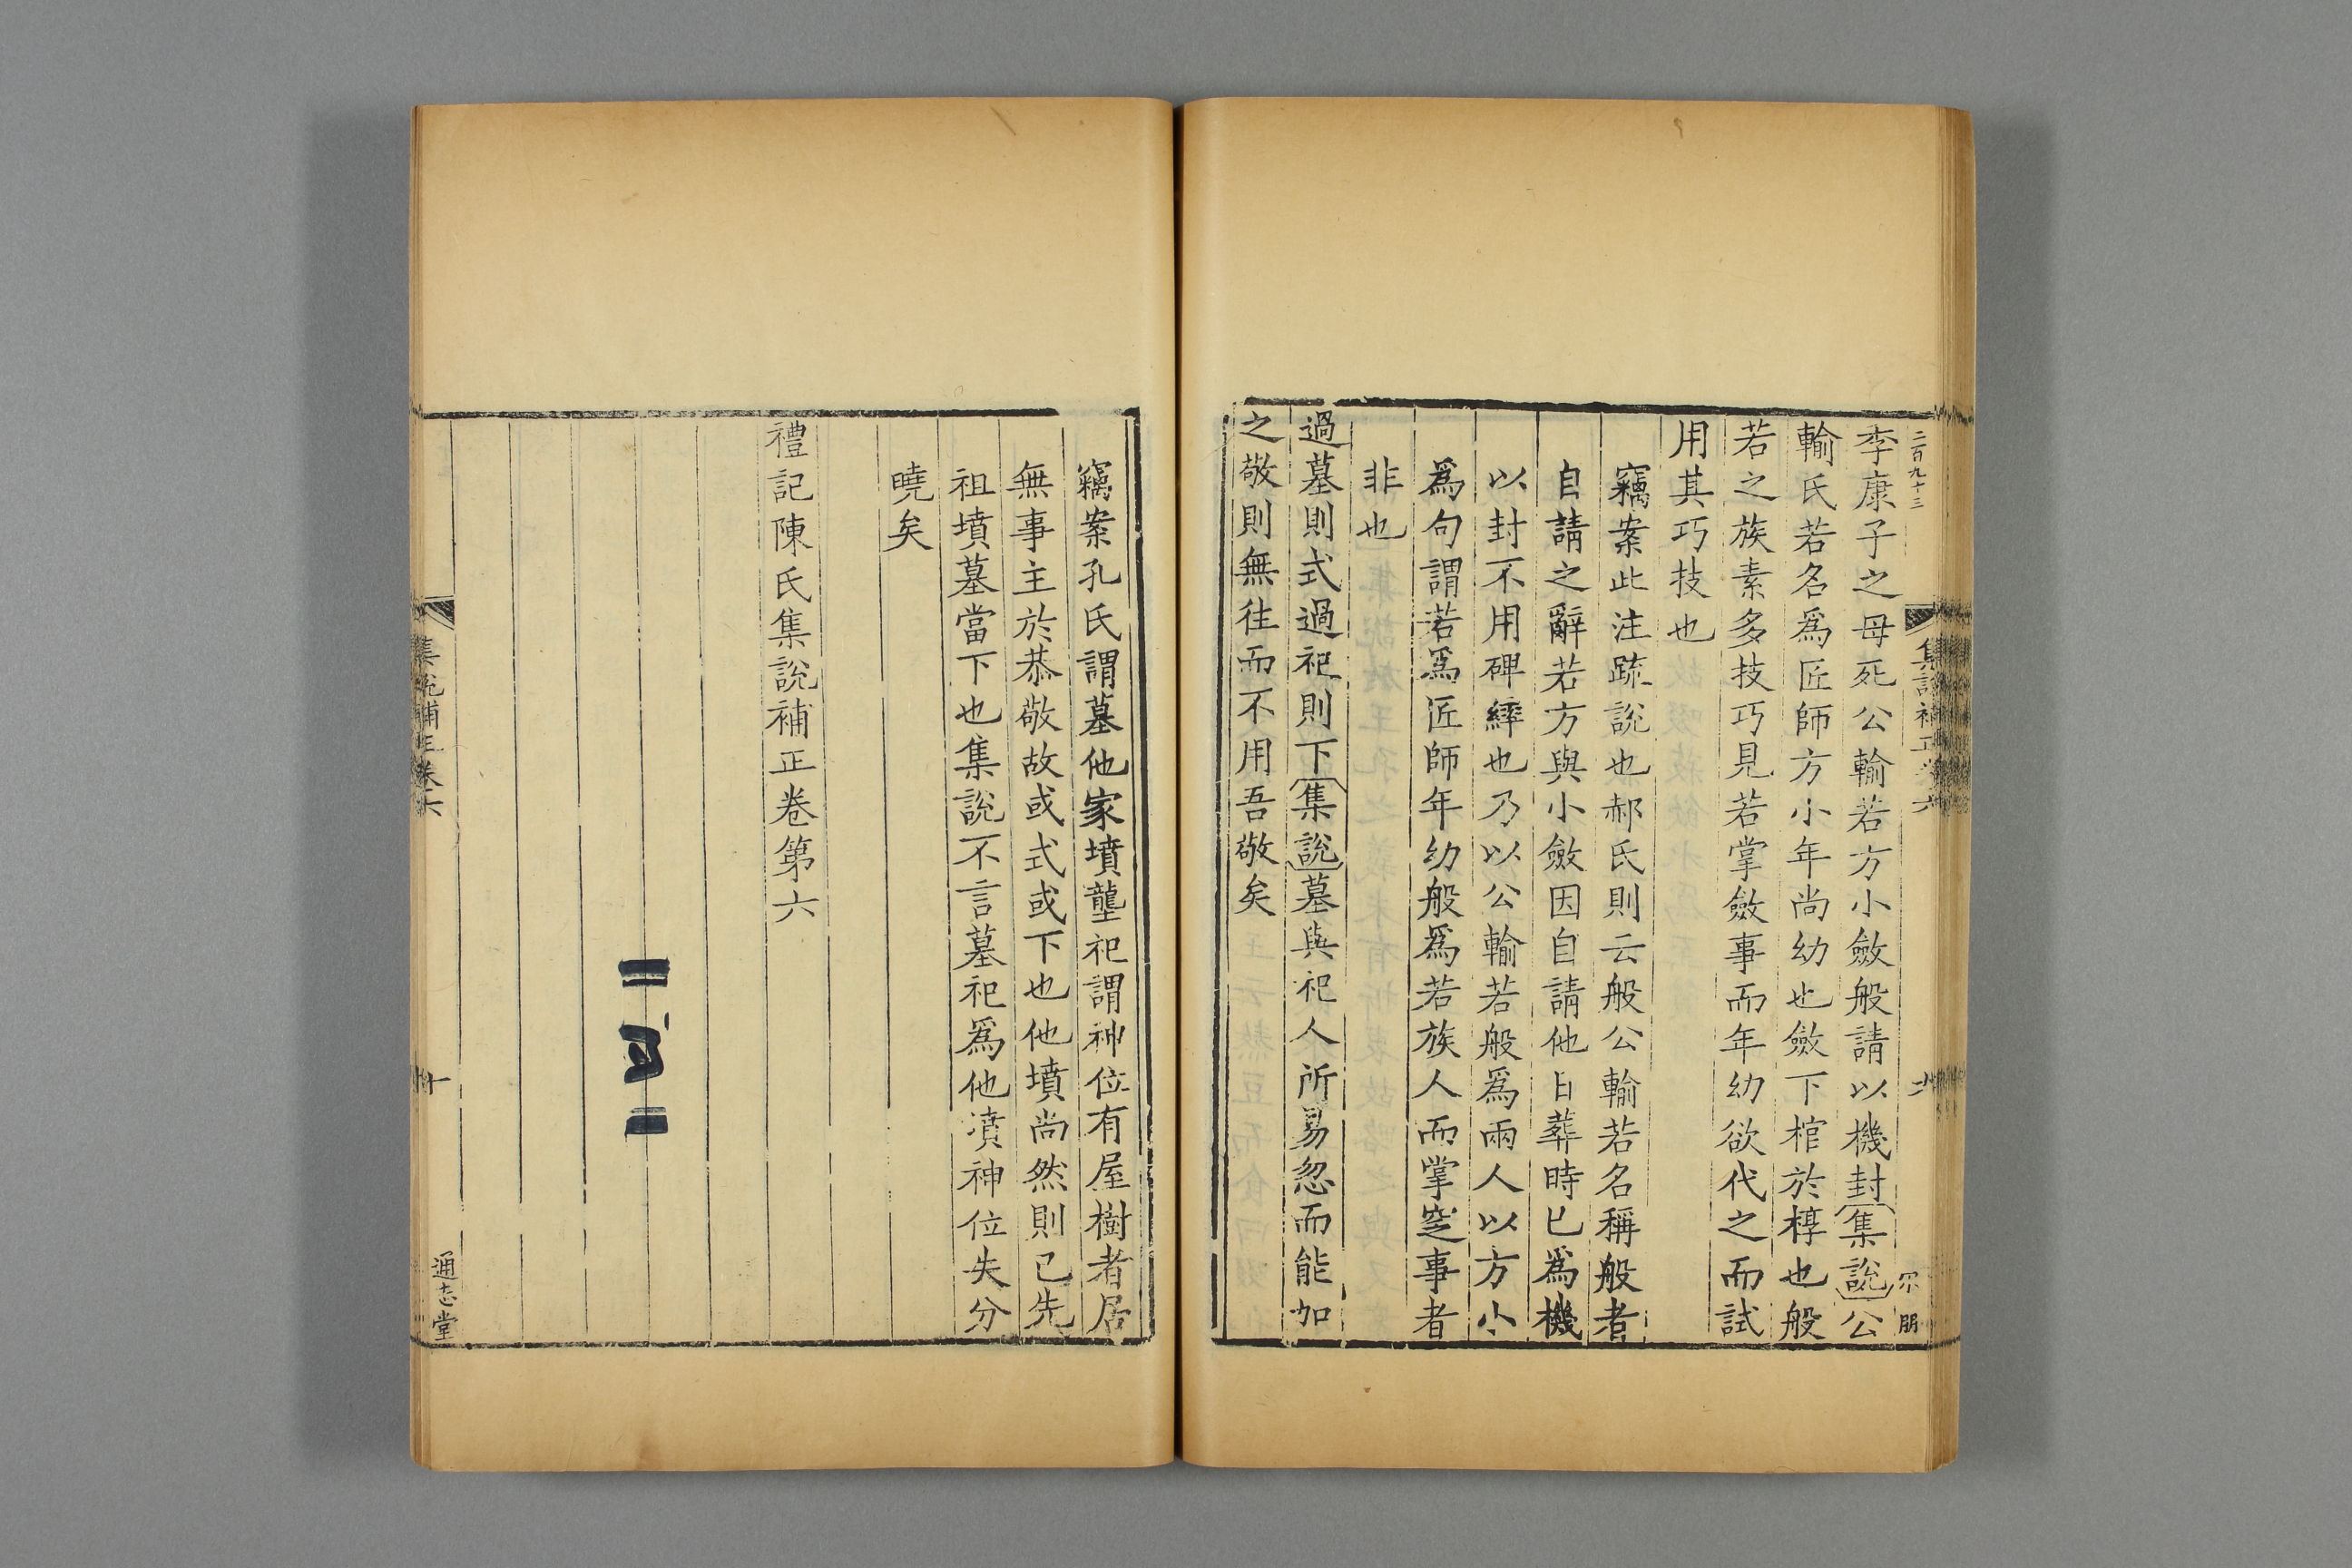 二百九十三
李康子之母死公輸若方小斂般請以機封集說公
輸氏若名爲匠師方小年尚幼也斂下棺於椁也般
若之族素多技巧見若掌斂事而年幼欲代之而試
用其巧技也
竊案此注疏說也郝氏則云般公輸若名稱般者
自請之辭若方與小斂因自請他日葬時已爲機
以封不用碑繂也乃以公輸若般爲兩人以方小
爲句謂若爲匠師年幼般爲若族人而掌窆事者
非也
過墓則式過祀則下集說墓與祀人所易忽而能加
之敬則無往而不用吾敬矣
竊案孔氏謂墓他家墳壟祀謂神位有屋樹者居
無事主於恭敬故或式或下也他墳尚然則已先
祖墳墓當下也集說不言墓祀爲他墳神位失分
曉矣
禮記陳氏集說補正卷第六
集說補正卷六
通志堂